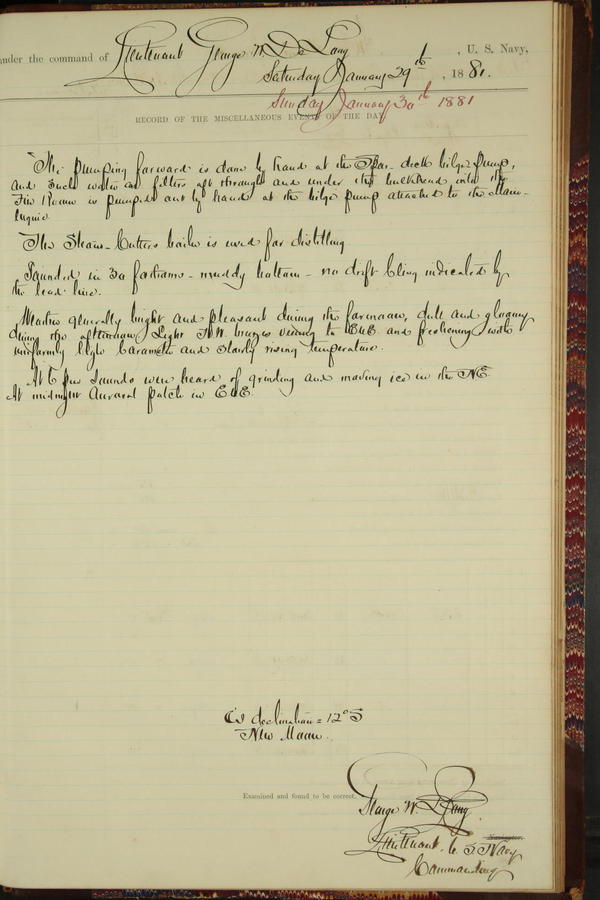 under the command of Lieutenant George W. De Long, U. S. Navy,
Saturday January 29th, 1881.
Sunday January 30th 1881
RECORD OF THE MISCELLANEOUS EVENTS OF THE DAY.
The pumping forward is done by hand at the Spar deck bilge pump,
and such water as filters aft through and under the bulkhead into the
Fire Room is pumped out by hand at the bilge pump attached to the Main-
Engine.
The Steam-Cutters boiler is used for distilling
Sounded in 30 fathoms - muddy bottom - no drift being indicated by
the lead line.
Weather generally bright and pleasant during the forenoon, dull and gloomy
during the afternoon. Light NW. breezes veering to and freshening with
uniformly high barometer and slowly rising temperature.
At 6 pm sounds were heard of grinding and moving ice in the NE.
At midnight Auroral patch in ESE.
☾'s declination = 12° S
New Moon.
Examined and found to be correct.
George W. De Long
Navigator.
Lieutenant U. S. Navy
Commanding